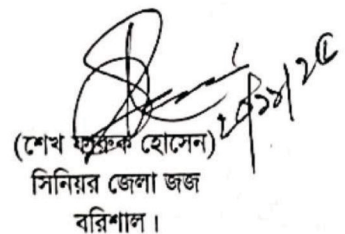 (শেখ ফারুক হোসেন)
সিনিয়র জেলা জজ
বরিশাল।